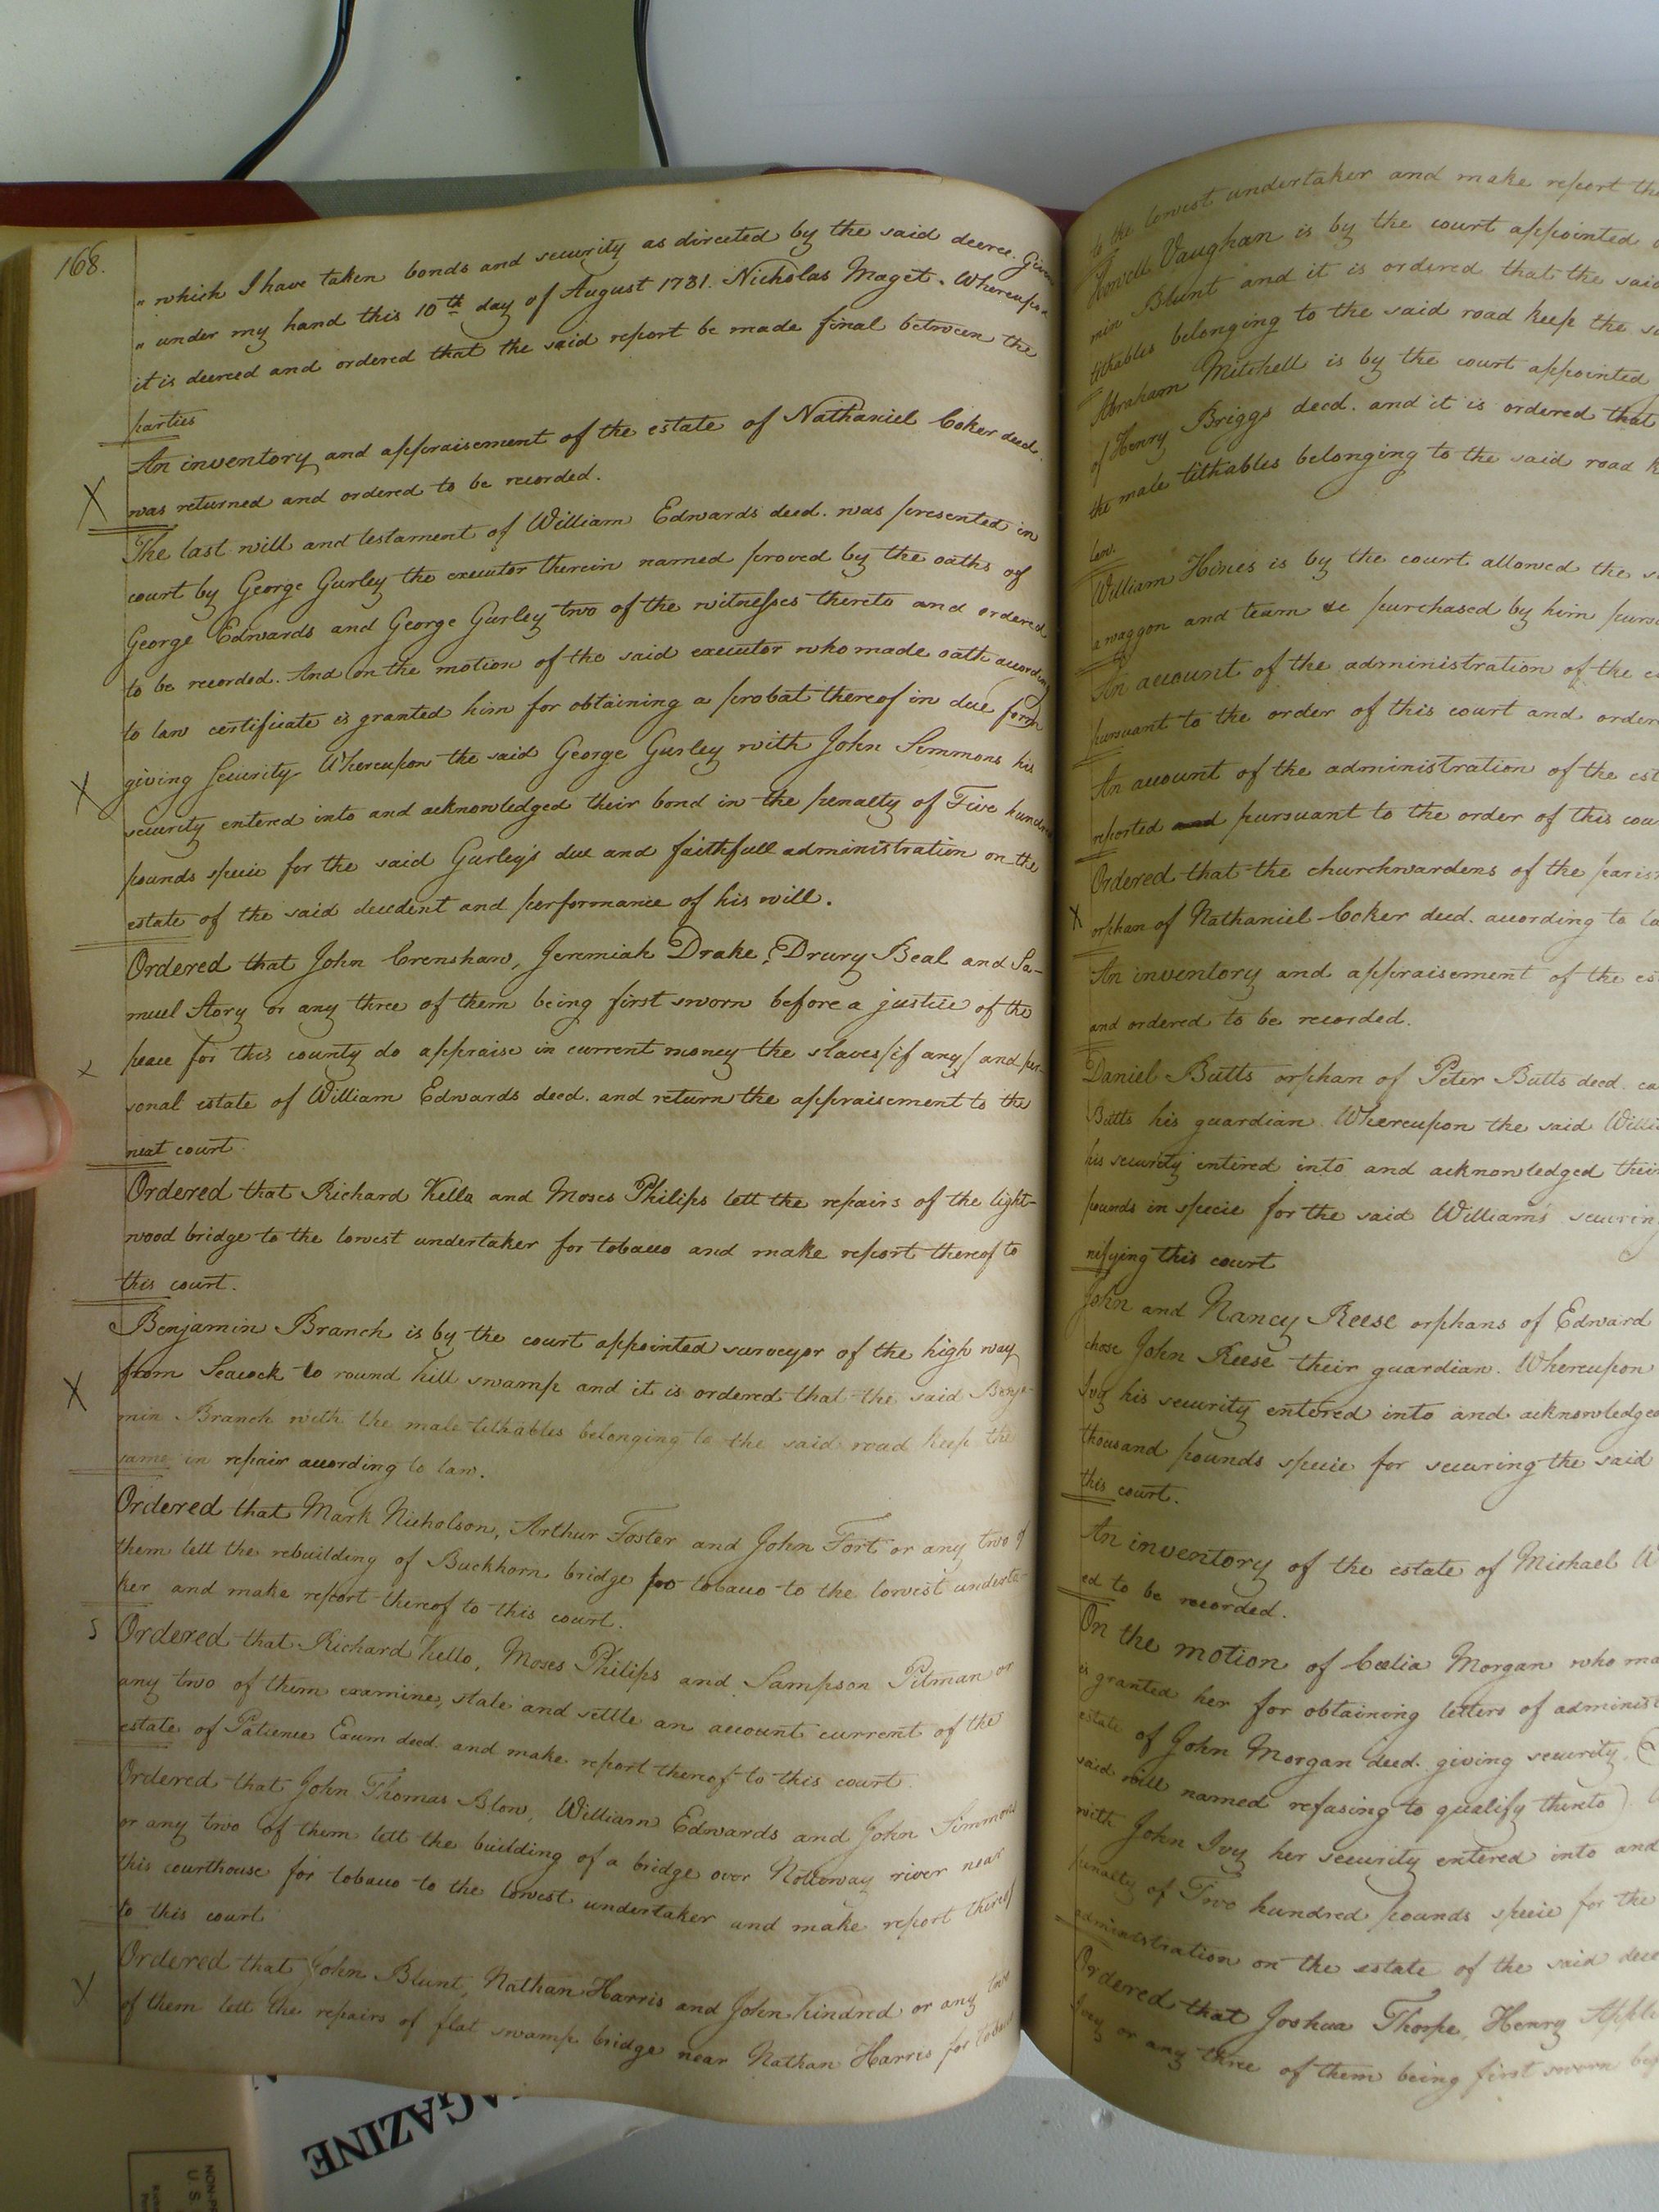 168.
" which I have taken bonds and security as directed by the said decree. Given
" under my hand this 10th day of August 1781. Nicholas Maget. Whereupon
it is decreed and ordered that the said report be made final between the
parties
An inventory and appraisement of the estate of Nathaniel Coker deed.
X was returned and ordered to be recorded.
The last will and testament of William Edwards deed. was presented in
court by George Gurley the executor therein named proved by the oaths of
George Edwards and George Gurley two of the witnesses thereto and ordered
to be recorded. And on the motion of the said executor who made oath according
to law certificate is granted him for obtaining a probat thereof in due form
X giving security Whereupon the said George Gurley with John Simmons his
security entered into and acknowledged their bond in the penalty of Five hundred
pounds specie for the said Gurley's due and faithfull administration on the
estate of the said decedent and performance of his will.
Ordered that John Crenshaw, Jeremiah Drake, Drury Beal and Sa-
muel Story or any three of them being first sworn before a justice of the
x peace for this county do appraise in current money the slaves /if any/ and per-
sonal estate of William Edwards deed. and return the appraisement to the
next court
Ordered that Richard Kello and Moses Philips lett the repairs of the light-
wood bridge to the lowest undertaker for tobacco and make report thereof to
this court.
Benjamin Branch is by the court appointed surveyor of the high way
X from Seacock to round hill swamp and it is ordered that the said Benja-
min Branch with the male tithables belonging to the said road keep the
same in repair according to law.
Ordered that Mark Nicholson, Arthur Foster and John Fort or any two of
them lett the rebuilding of Buckhorn bridge for tobacco to the lowest underta-
ker and make report thereof to this court.
Ordered that Richard Kello, Moses Philips and Sampson Pitman or
any two of them examine, state and settle an account current of the
estate of Patience Exum deed. and make report thereof to this court.
Ordered that John Thomas Blow, William Edwards and John Simmons
or any two of them lett the building of a bridge over Nottoway river near
this courthouse for tobacco to the lowest undertaker and make report thereof
to this court
Ordered that John Blunt, Nathan Harris and John Kindred or any two
X of them lett the repairs of flat swamp bridge near Nathan Harris for tobacco
to the lowest undertaker and make report the
Howell Vaughan is by the court appointed
min Blunt and it is ordered that the said
tithables belonging to the said road keep the
Abraham Mitchell is by the court appointed
of Henry Briggs deed. and it is ordered that
the male tithables belonging to the said road
law.
William Hines is by the court allowed the
a waggon and team &c purchased by him
An account of the administration of the
pursuant to the order of this court and
An account of the administration of the
reported and pursuant to the order of this
Ordered that the churchwardens of the
X orphan of Nathaniel Coker deed. according to
An inventory and appraisement of the
and ordered to be recorded.
Daniel Butts orphan of Peter Butts deed.
Butts his guardian. Whereupon the said
his security entered into and acknowledged their
pounds in specie for the said William's
nifying this court
John and Nancy Reese orphans of Edward
chose John Reese their guardian. Whereupon
Ivy his security entered into and acknowledged
thousand pounds specie for securing the said
this court.
An inventory of the estate of Michael
ed to be recorded.
On the motion of Cœlia Morgan who
is granted her for obtaining letters of
estate of John Morgan deed. giving security
said will named refusing to qualify thereto)
with John Ivy her security entered into and
penalty of Two hundred pounds specie for the
administration on the estate of the said
Ordered that Joshua Thorpe, Henry
Ivey or any three of them being first sworn
MAGAZINE
U.S.